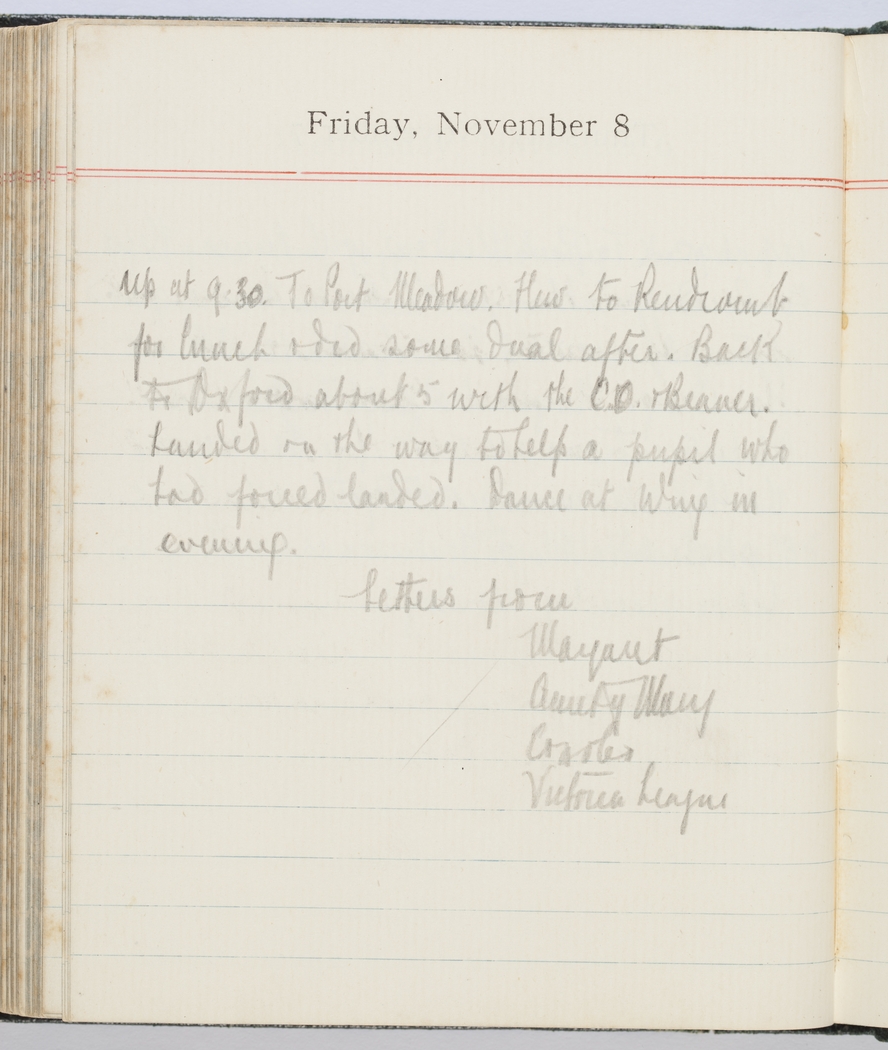 Friday, November 8
Up at 9.30. To Port Meadow. Flew to Rendcomb
for lunch & did some dual after. Back
to Oxford about 5 with the C.O. &
Landed on the way to help a pupil who
had forced landed. Dance at Wing in
evening.
Letters from
Margaret
Aunty Mary
Victoria League